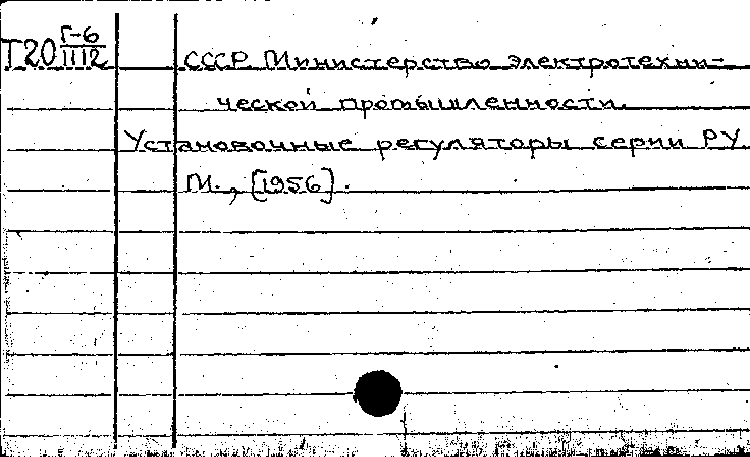 Т20 Г-6/1112
СССР. Министерство электротехни-
ческой промышленности.
Установочные регуляторы серии РУ.
М., [1956].